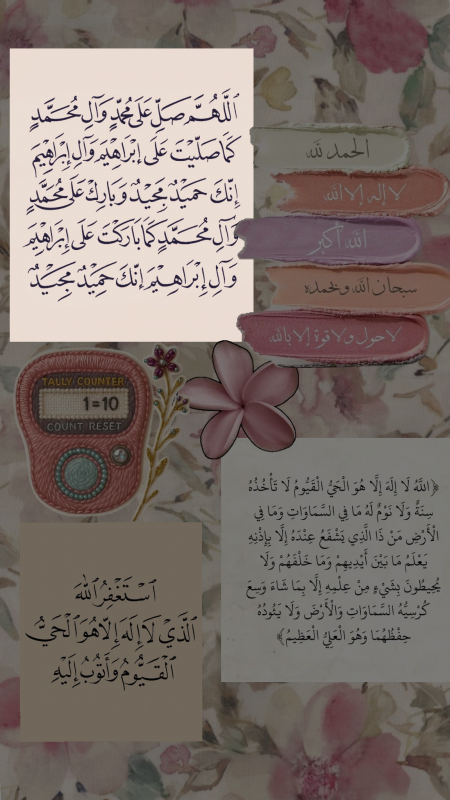 اَللّٰهُمَّ صَلِّ عَلَى مُحَمَّدٍ وَآلِ مُحَمَّدٍ
كَمَا صَلَّيْتَ عَلَى إِبْرَاهِيْمَ وَآلِ إِبْرَاهِيْمَ
إِنَّكَ حَمِيْدٌ مَجِيْدٌ وَبَارِكْ عَلَى مُحَمَّدٍ
وَآلِ مُحَمَّدٍ كَمَا بَارَكْتَ عَلَى إِبْرَاهِيْمَ
وَآلِ إِبْرَاهِيْمَ إِنَّكَ حَمِيْدٌ مَجِيْدٌ
الحمد لله
لا إله إلا الله
الله أكبر
سبحان الله وبحمده
لا حول ولا قوة إلا بالله
TALLY COUNTER
1=10
COUNT RESET
﴿اللَّهُ لَا إِلَهَ إِلَّا هُوَ الْحَيُّ الْقَيُّومُ لَا تَأْخُذُهُ
سِنَةٌ وَلَا نَوْمٌ لَهُ مَا فِي السَّمَاوَاتِ وَمَا فِي
الْأَرْضِ مَنْ ذَا الَّذِي يَشْفَعُ عِنْدَهُ إِلَّا بِإِذْنِهِ
يَعْلَمُ مَا بَيْنَ أَيْدِيهِمْ وَمَا خَلْفَهُمْ وَلَا
يُحِيطُونَ بِشَيْءٍ مِنْ عِلْمِهِ إِلَّا بِمَا شَاءَ وَسِعَ
كُرْسِيُّهُ السَّمَاوَاتِ وَالْأَرْضَ وَلَا يَئُودُهُ
حِفْظُهُمَا وَهُوَ الْعَلِيُّ الْعَظِيمُ﴾
اَسْتَغْفِرُ اللهَ
اَلَّذِيْ لَا إِلَهَ إِلَّا هُوَ اَلْحَيُّ
اَلْقَيُّوْمُ وَأَتُوْبُ إِلَيْهِ